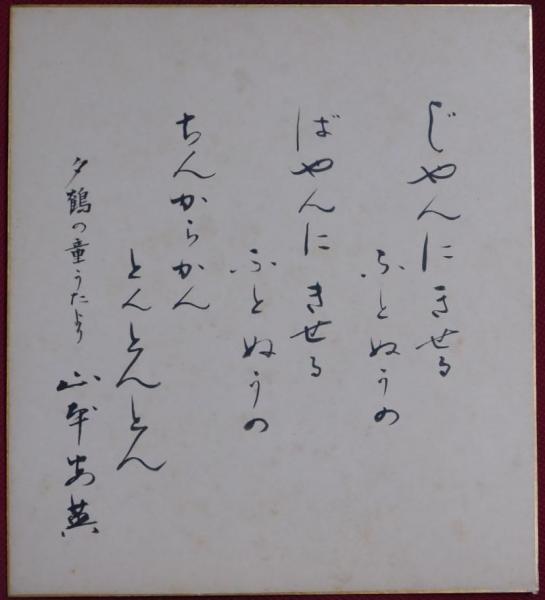 じやんにきせる
ふとぬうの
ばやんにきせる
ふとぬうの
ちんからかん
とんとんとん
夕鶴の童うたより
山本安英